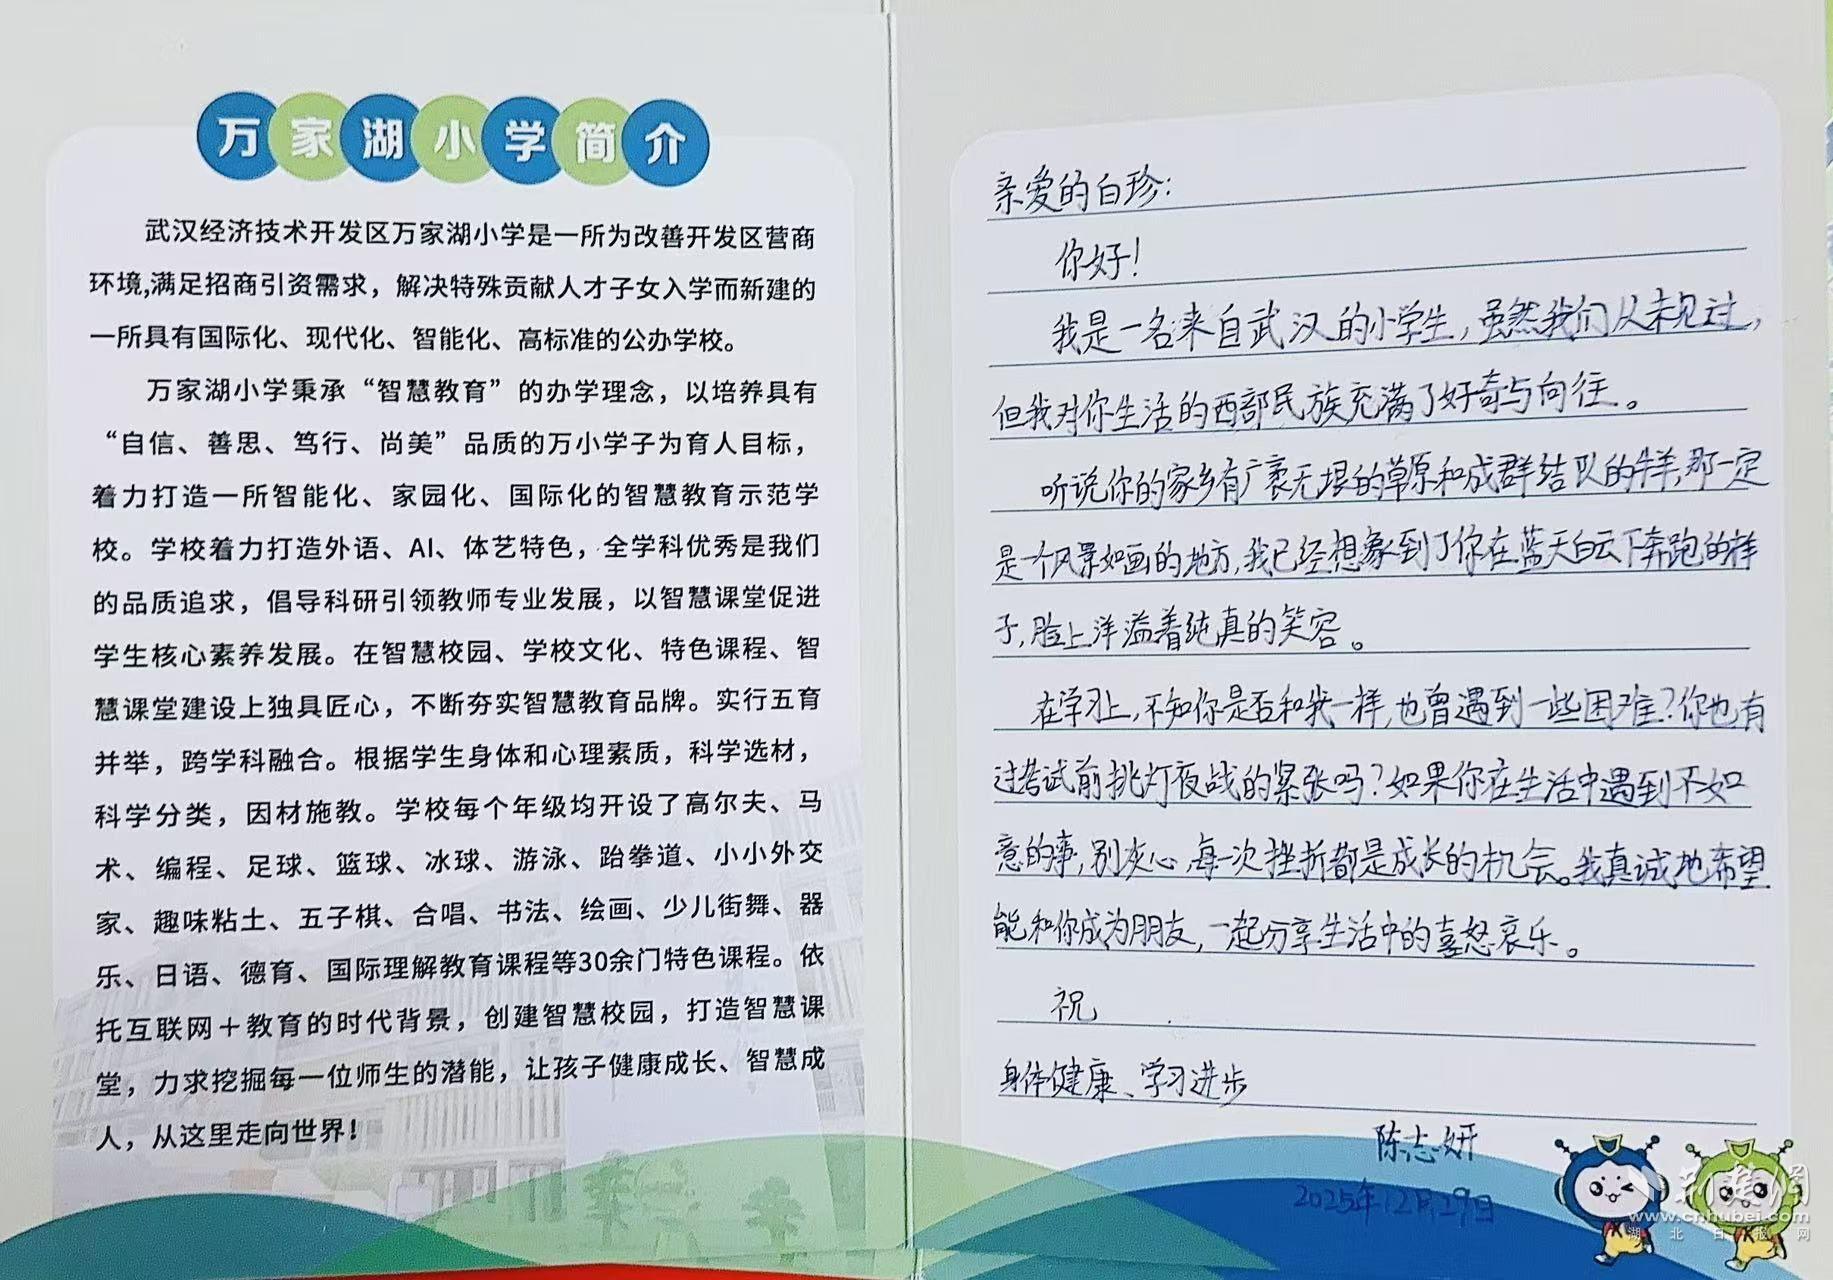 万家湖小学简介
武汉经济技术开发区万家湖小学是一所为改善开发区营商
环境,满足招商引资需求，解决特殊贡献人才子女入学而新建的
一所具有国际化、现代化、智能化、高标准的公办学校。
万家湖小学秉承“智慧教育”的办学理念，以培养具有
“自信、善思、笃行、尚美”品质的万小学子为育人目标，
着力打造一所智能化、家园化、国际化的智慧教育示范学
校。学校着力打造外语、AI、体艺特色，全学科优秀是我们
的品质追求，倡导科研引领教师专业发展，以智慧课堂促进
学生核心素养发展。在智慧校园、学校文化、特色课程、智
慧课堂建设上独具匠心，不断夯实智慧教育品牌。实行五育
并举，跨学科融合。根据学生身体和心理素质，科学选材，
科学分类，因材施教。学校每个年级均开设了高尔夫、马
术、编程、足球、篮球、冰球、游泳、跆拳道、小小外交
家、趣味粘土、五子棋、合唱、书法、绘画、少儿街舞、器
乐、日语、德育、国际理解教育课程等30余门特色课程。依
托互联网＋教育的时代背景，创建智慧校园，打造智慧课
堂，力求挖掘每一位师生的潜能，让孩子健康成长、智慧成
人，从这里走向世界！
亲爱的白珍：
你好！
我是一名来自武汉的小学生，虽然我们从未见过，
但我对你生活的西部民族充满了好奇与向往。
听说你的家乡有广袤无垠的草原和成群结队的牛羊，那一定
是一个风景如画的地方，我已经想象到了你在蓝天白云下奔跑的样
子，脸上洋溢着纯真的笑容。
在学习上，不知你是否和我一样，也曾遇到一些困难？你也有
过考试前挑灯夜战的紧张吗？如果你在生活中遇到不如
意的事，别灰心，每一次挫折都是成长的机会。我真诚地希望
能和你成为朋友，一起分享生活中的喜怒哀乐。
祝
身体健康、学习进步
陈志妍
2025年12月29日
荆楚网
www.cnhubei.com
湖北日报网